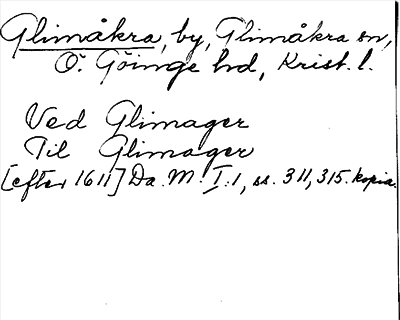 Glimåkra, by, Glimåkra sn,
Ö. Göinge hd, Krist. l.
Ved Glimager
Til Glimager
[efter 1611] Da. M. I. 1, ss. 311, 315. kopia.